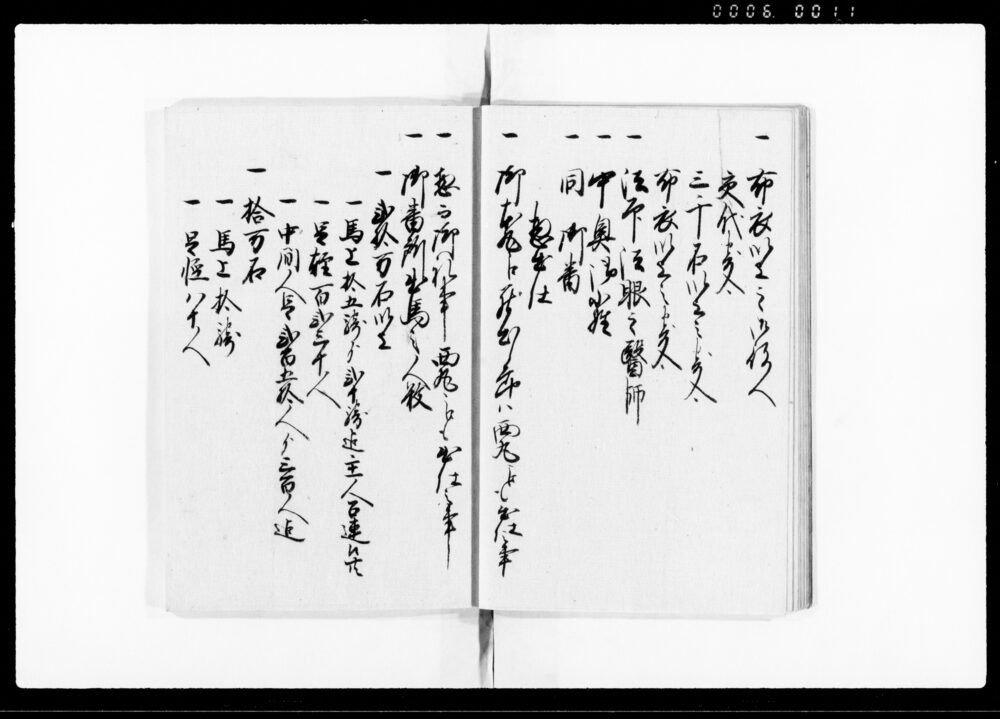 0006 0011
一 布衣以上之御役人
交代寄合
三千石以上之寄合
布衣以上之寄合
一 法印法眼之醫師
一 中奥御小姓
一 同 御番
惣出仕
一 御本丸江出仕 西丸江も出仕事
一 惣而御礼事西丸江も出仕事
一 御番所出馬之人数
一 弐拾万石以上
一 馬上拾五騎ゟ弐十騎迄主人召連候共
一 足軽百弐三十人
一 中間人足弐百五拾人ゟ三百人迄
一 拾万石
一 馬上拾騎
一 足軽八十人